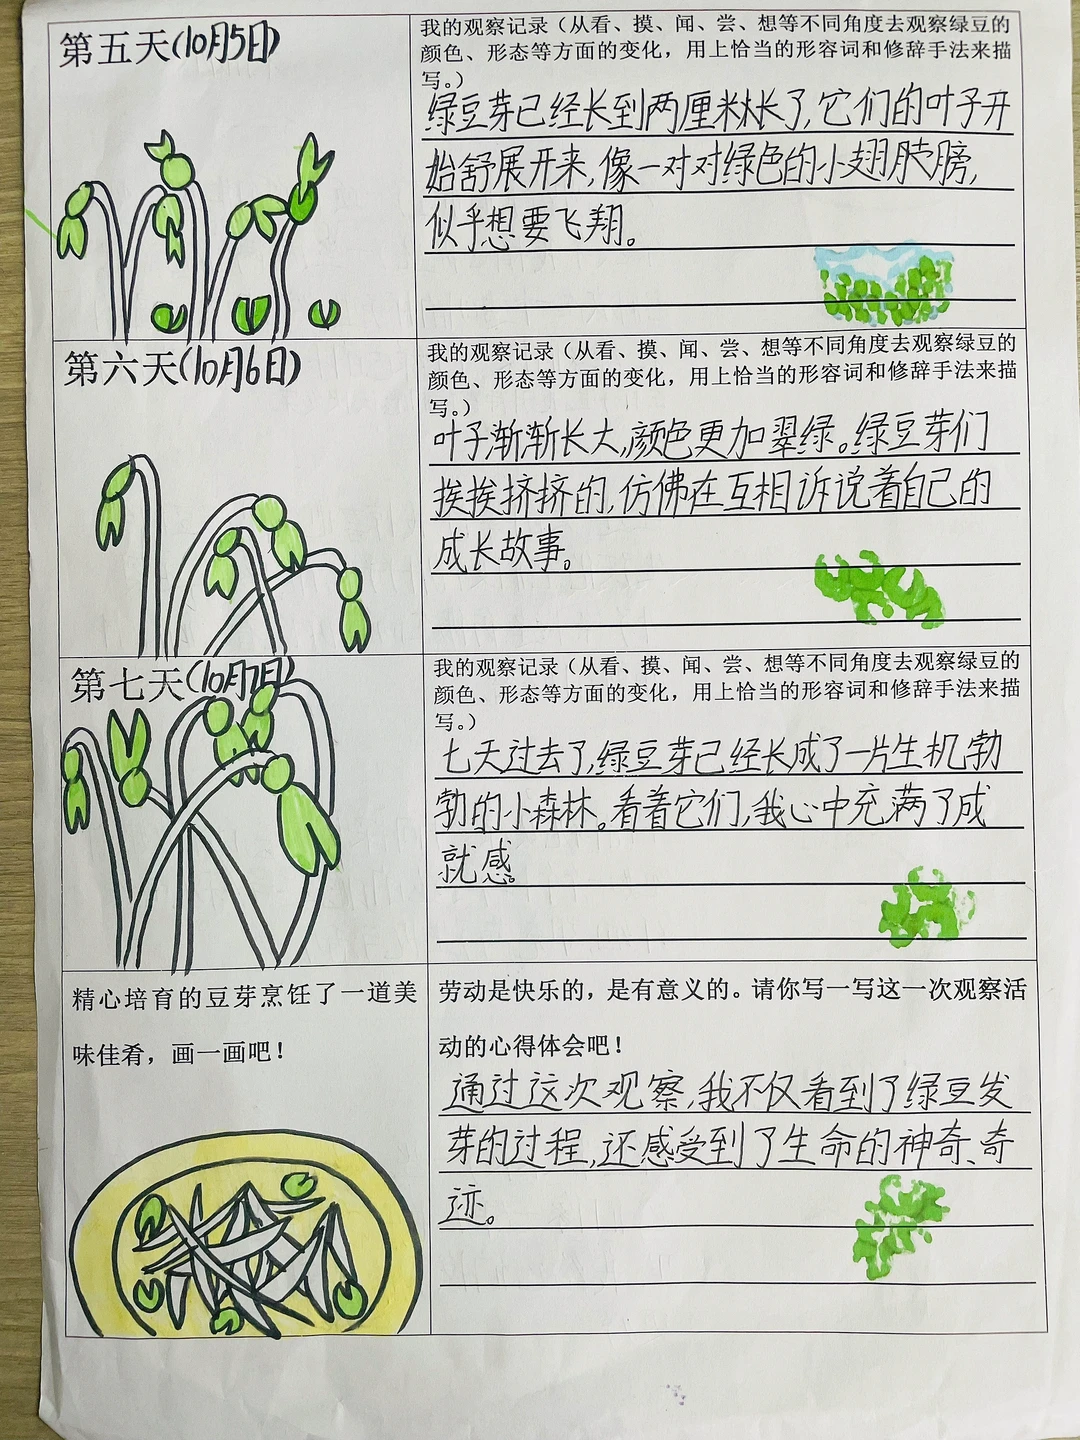 第五天(10月5日)
我的观察记录（从看、摸、闻、尝、想等不同角度去观察绿豆的
颜色、形态等方面的变化，用上恰当的形容词和修辞手法来描
写。）
绿豆芽已经长到两厘米长了，它们的叶子开
始舒展开来，像一对对绿色的小翅膀，
似乎想要飞翔。
第六天(10月6日)
我的观察记录（从看、摸、闻、尝、想等不同角度去观察绿豆的
颜色、形态等方面的变化，用上恰当的形容词和修辞手法来描
写。）
叶子渐渐长大，颜色更加翠绿。绿豆芽们
挨挨挤挤的，仿佛在互相诉说着自己的
成长故事。
第七天(10月7日)
我的观察记录（从看、摸、闻、尝、想等不同角度去观察绿豆的
颜色、形态等方面的变化，用上恰当的形容词和修辞手法来描
写。）
七天过去了，绿豆芽已经长成了一片生机勃
勃的小森林。看着它们，我心中充满了成
就感。
精心培育的豆芽烹饪了一道美
味佳肴，画一画吧！
劳动是快乐的，是有意义的。请你写一写这一次观察活
动的心得体会吧！
通过这次观察，我不仅看到了绿豆发
芽的过程，还感受到了生命的神奇、奇
迹。